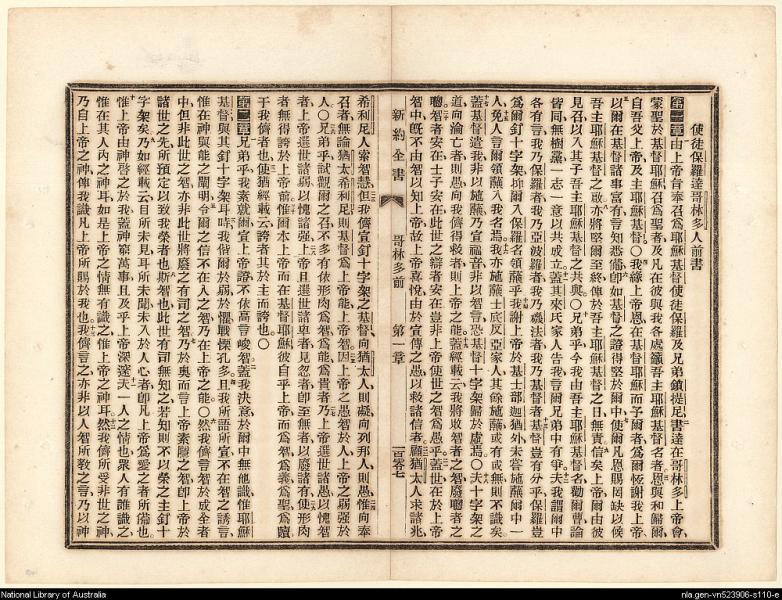 使徒保羅達哥林多人前書
第一章由上帝旨奉召爲耶穌基督使徒保羅及兄弟鎖提尼書達在哥林多上帝會
蒙聖於基督耶穌召爲聖者及凡在彼與我各處籲吾主耶穌基督名者恩與和歸爾
自吾父上帝及主耶穌基督○我緣上帝恩在基督耶穌而予爾者爲爾恆謝我上帝
以爾在基督諸事富有言知悉備卽如基督之證得堅於爾中使爾凡恩賜罔缺以候
吾主耶穌基督之啟亦將堅爾至終俾於吾主耶穌基督之日無責信矣上帝爾由彼
見召以入其子吾主耶穌基督之共與○兄弟乎今我由吾主耶穌基督名勸爾曹論
皆同無樹黨一志一意以共成立蓋其來氏家人告我言爾兄弟中有爭夫我謂爾中
各有言我乃保羅者我乃亞波羅者我乃磯法者我乃基督者基督豈有分乎保羅豈
爲爾釘十字架抑爾入保羅名領蘸乎我謝上帝於基士部迦猶外未嘗施蘸爾中一
人免人言爾領蘸入我名焉我亦施蘸士底反亞家人其餘施蘸或有或無則不識矣
蓋基督遣我非以施蘸乃宣福音非以智言恐基督十字架歸於虛焉○夫十字架之
道向淪亡者則愚向我儕得救者則上帝之能蓋經載云我將敗智者之智廢聰者之
聰智者安在士子安在此世之辯者安在豈非上帝使世之智爲愚乎蓋世在於上帝
智中旣不由智以知上帝故上帝喜悅由於宣傳之愚以救諸信者顧猶太人求諸兆
新約全書 哥林多前 第一章 一百零七
希利尼人索智慧但我儕宣釘十字架之基督向猶太人則礙向列邦人則愚惟向奉
召者無論猶太希利尼則基督爲上帝能上帝智因上帝之愚智於人上帝之弱强於
人○兄弟乎試觀爾之召不多有依形肉爲智爲能爲貴者乃上帝選世諸愚以愧智
者上帝選世諸弱以愧諸强上帝且選世諸卑者見忽者卽至無者以廢諸有使形肉
者無得誇於上帝前惟爾本上帝而在基督耶穌彼自乎上帝而爲智爲義爲聖爲贖
于我儕者也使猶經載云誇者其於主而誇也○
第二章兄弟乎我素就爾宣上帝證不依高言峻智蓋我決意於爾中無他識惟耶穌
基督與其釘十字架耳時我偕爾於弱於懼戰慄孔多且我所語所宣不在智之誘言
惟在神與能之闡明令爾之信不在人之智乃在上帝之能○然我儕言智於成全者
中但非此世之智亦非此世將廢之有司之智乃於奧而言上帝素隱之智卽上帝於
諸世之先所預定以致我榮者也斯智也此世有司無知之若知則不以榮之主釘十
字架矣乃如經載云目所未見耳所未聞未入於人心者卽凡上帝爲愛之者所備也
惟上帝由神啓之於我蓋神察萬事且及乎上帝深邃夫一人之情也衆人有誰識之
惟在其人內之神耳如是上帝之情無有識之惟上帝之神耳然我儕所受非世之神
乃自上帝之神俾我識凡上帝所賜於我也我儕言之亦非以人智所敎之言乃以神
National Library of Australia
nla.gen-vn523906-s110-e